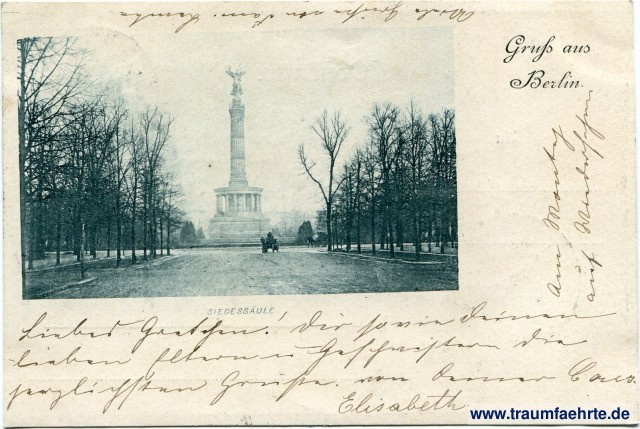 Gruß aus
Berlin.
Am Montag
auf Wiedersehen
SIEGESSÄULE
Liebes Gretchen! Dir sowie Deinen
lieben Eltern u Geschwistern die
herzlichsten Grüße. von Deiner
Elisabeth
www.traumfaehrte.de